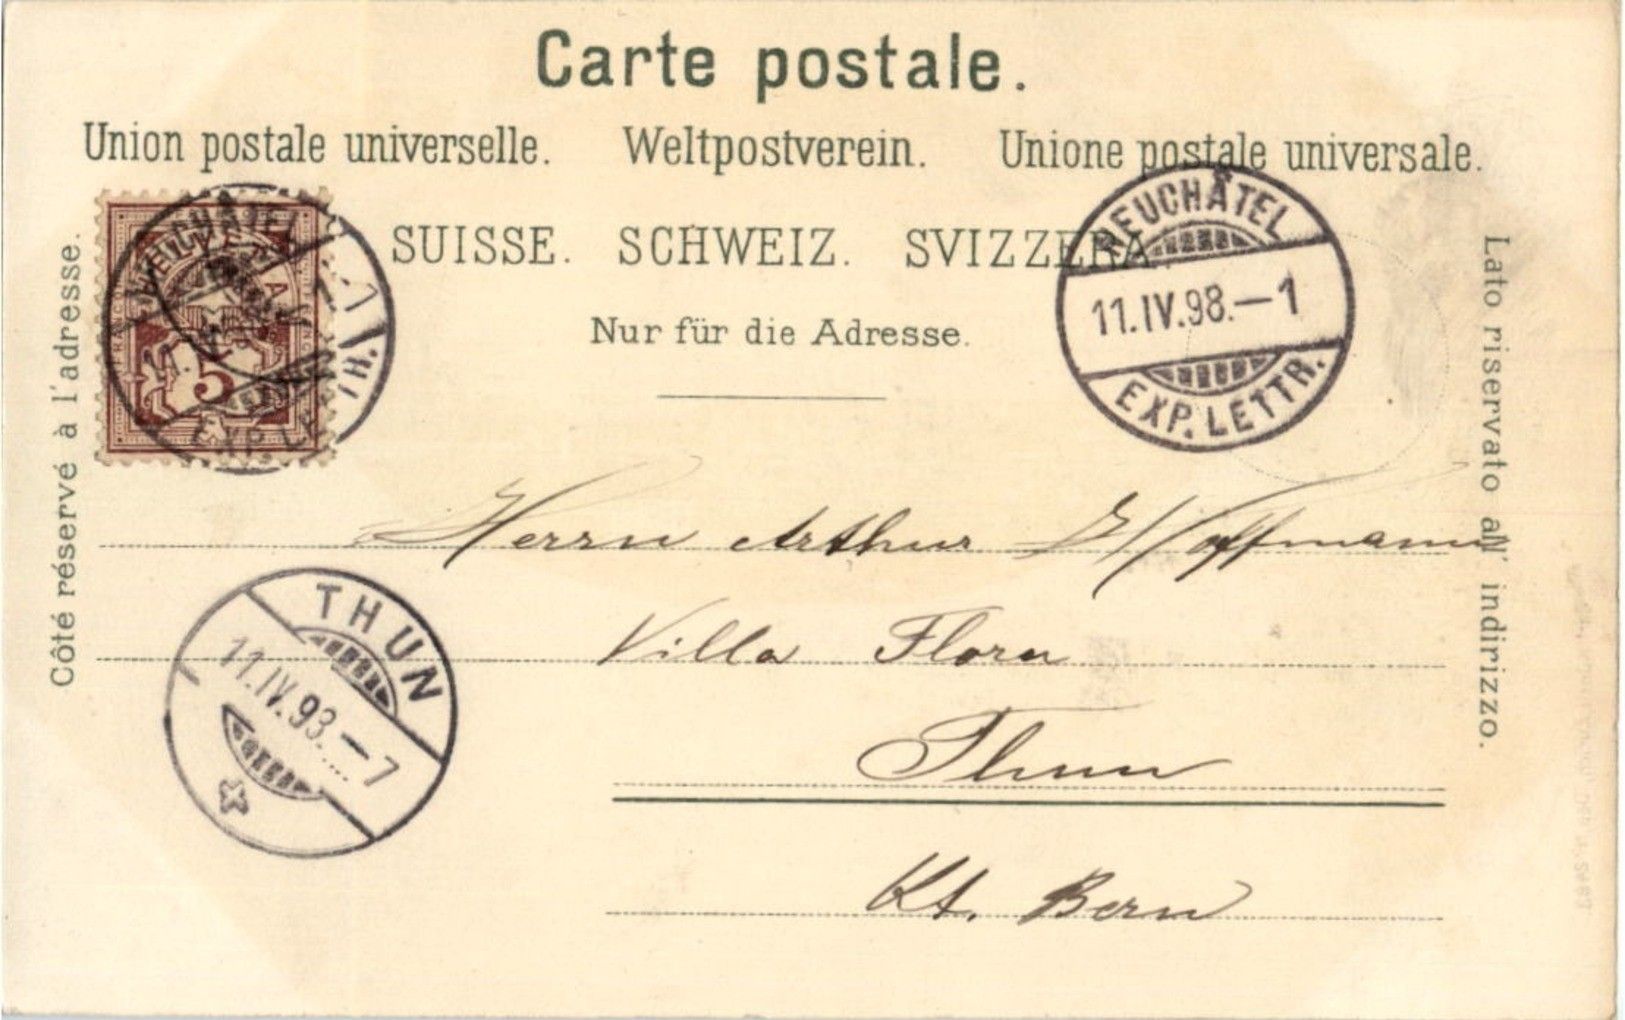 Carte postale.
Union postale universelle. Weltpostverein. Unione postale universale.
SUISSE. SCHWEIZ. SVIZZERA
Nur für die Adresse.
Côté réservé à l'adresse.
Lato riservato all' indirizzo.
NEUCHÂTEL
11.IV.98.–1
EXP. LETTR.
NEUCHÂTEL
11.
EXP. LE
5
Herrn Arthur Hoffmann
Villa Flora
Thun
Kt. Bern
THUN
11.IV.93.–7